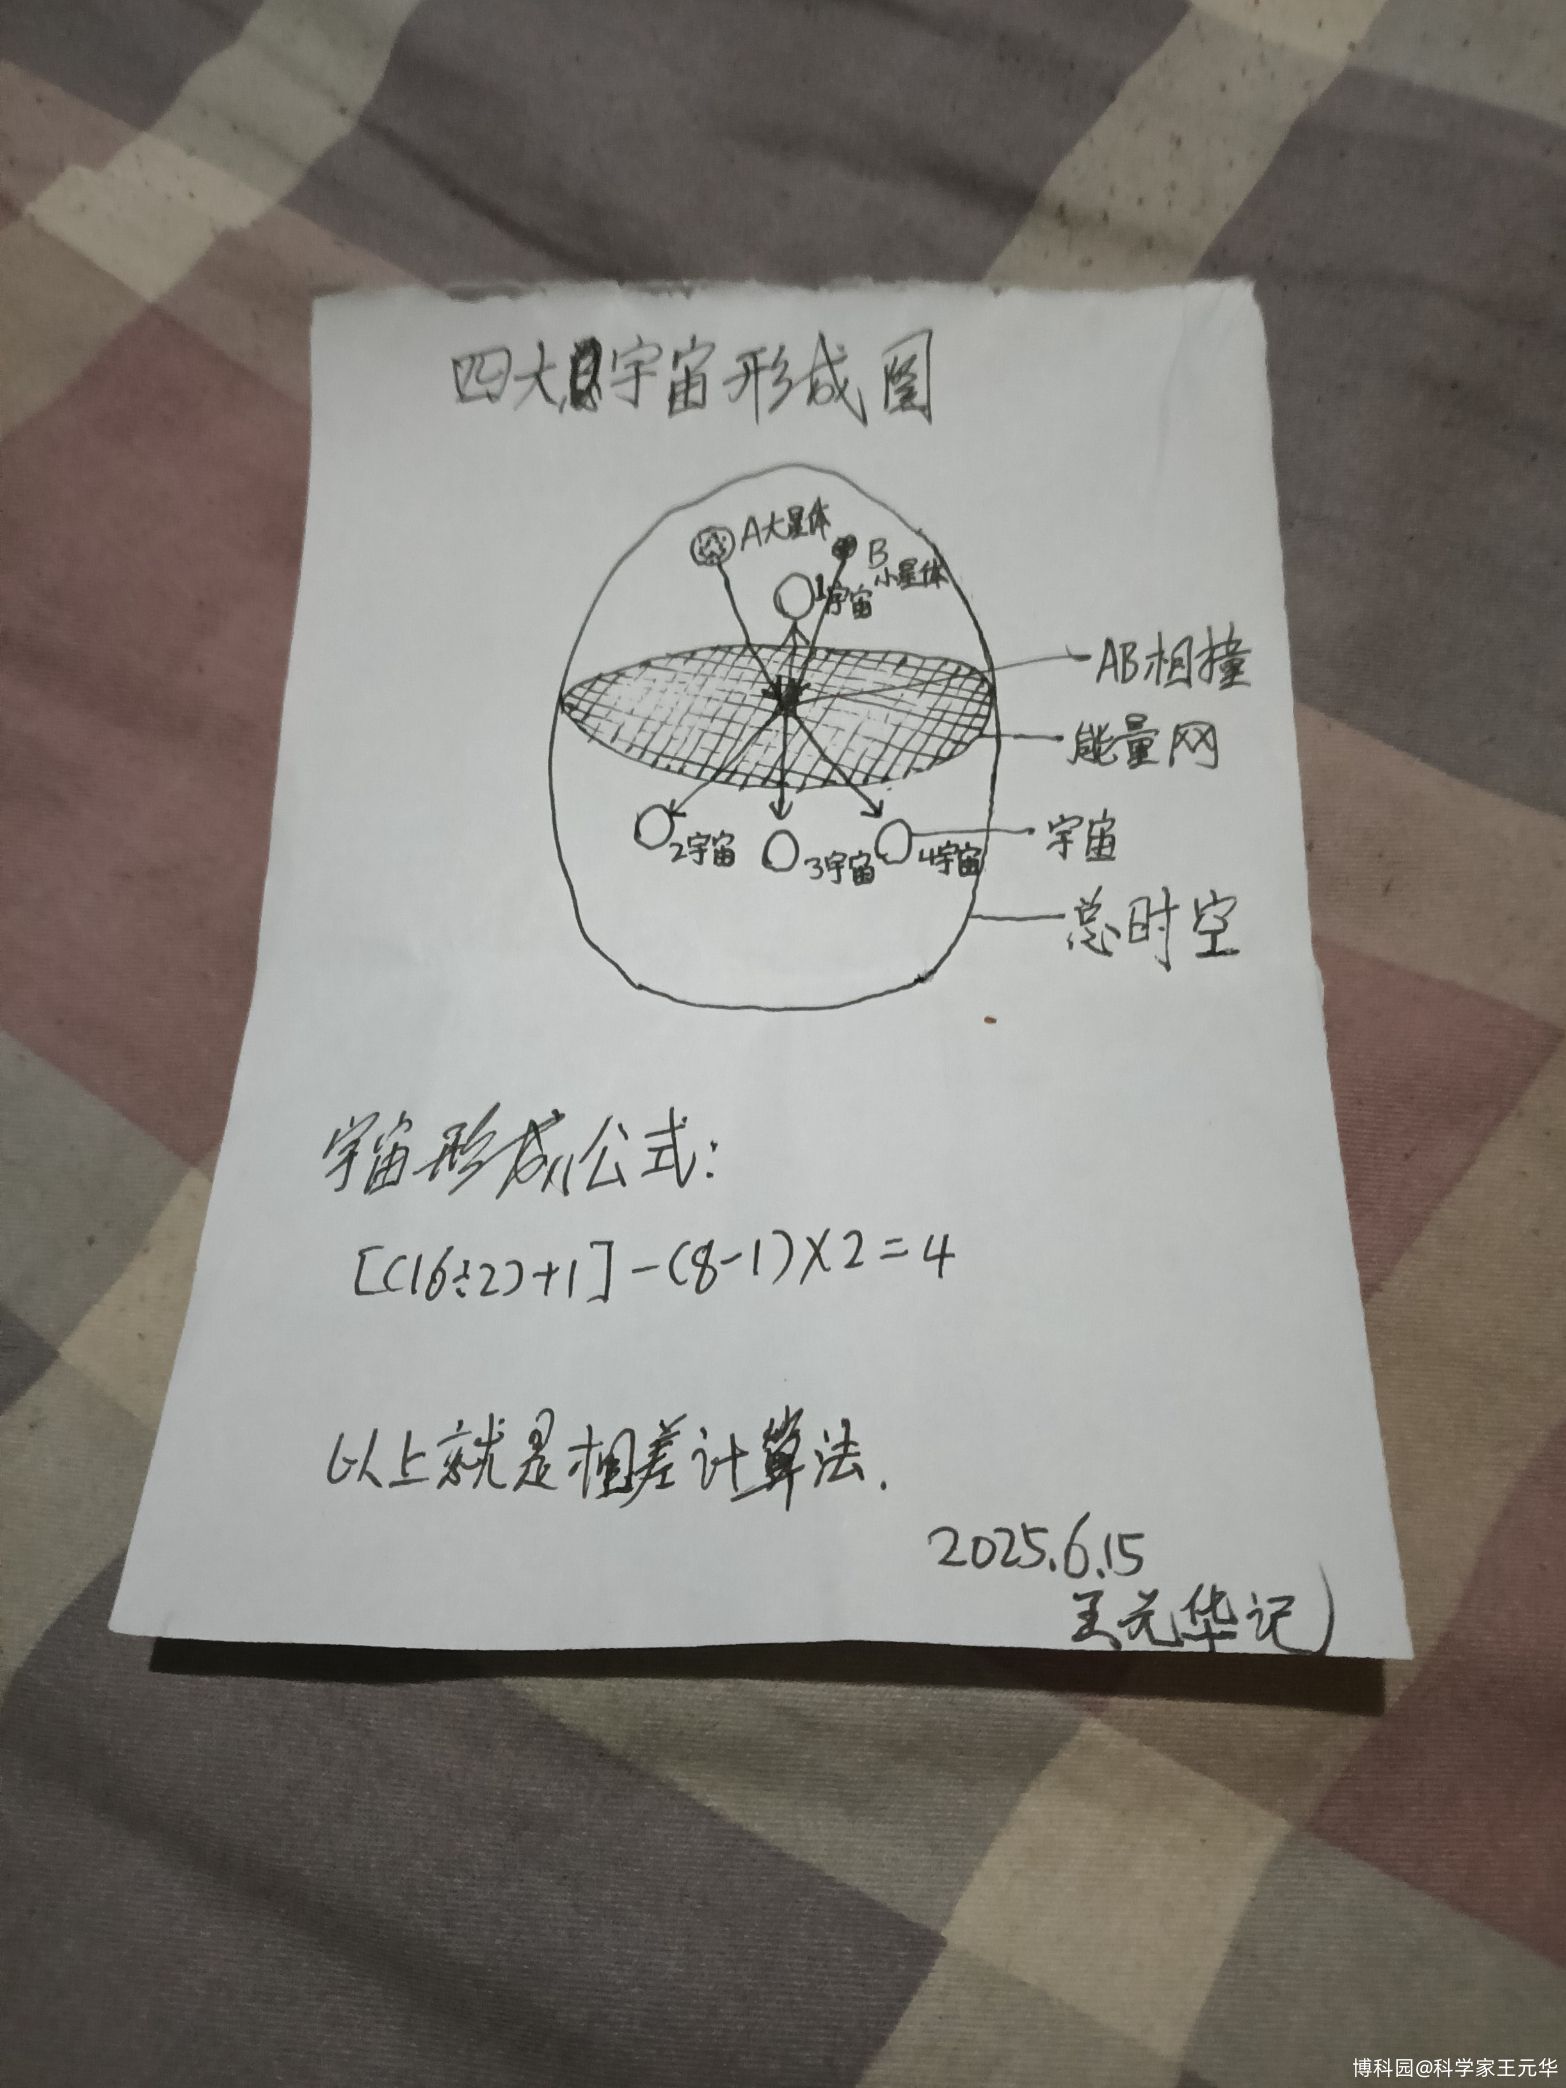 四大宇宙形成图
A大星体
B
小星体
1宇宙
AB相撞
能量网
2宇宙
3宇宙
4宇宙
宇宙
总时空
宇宙形成公式：
[(16÷2)+1]-(8-1)×2=4
以上就是相差计算法.
2025.6.15
王元华记
博科园@科学家王元华